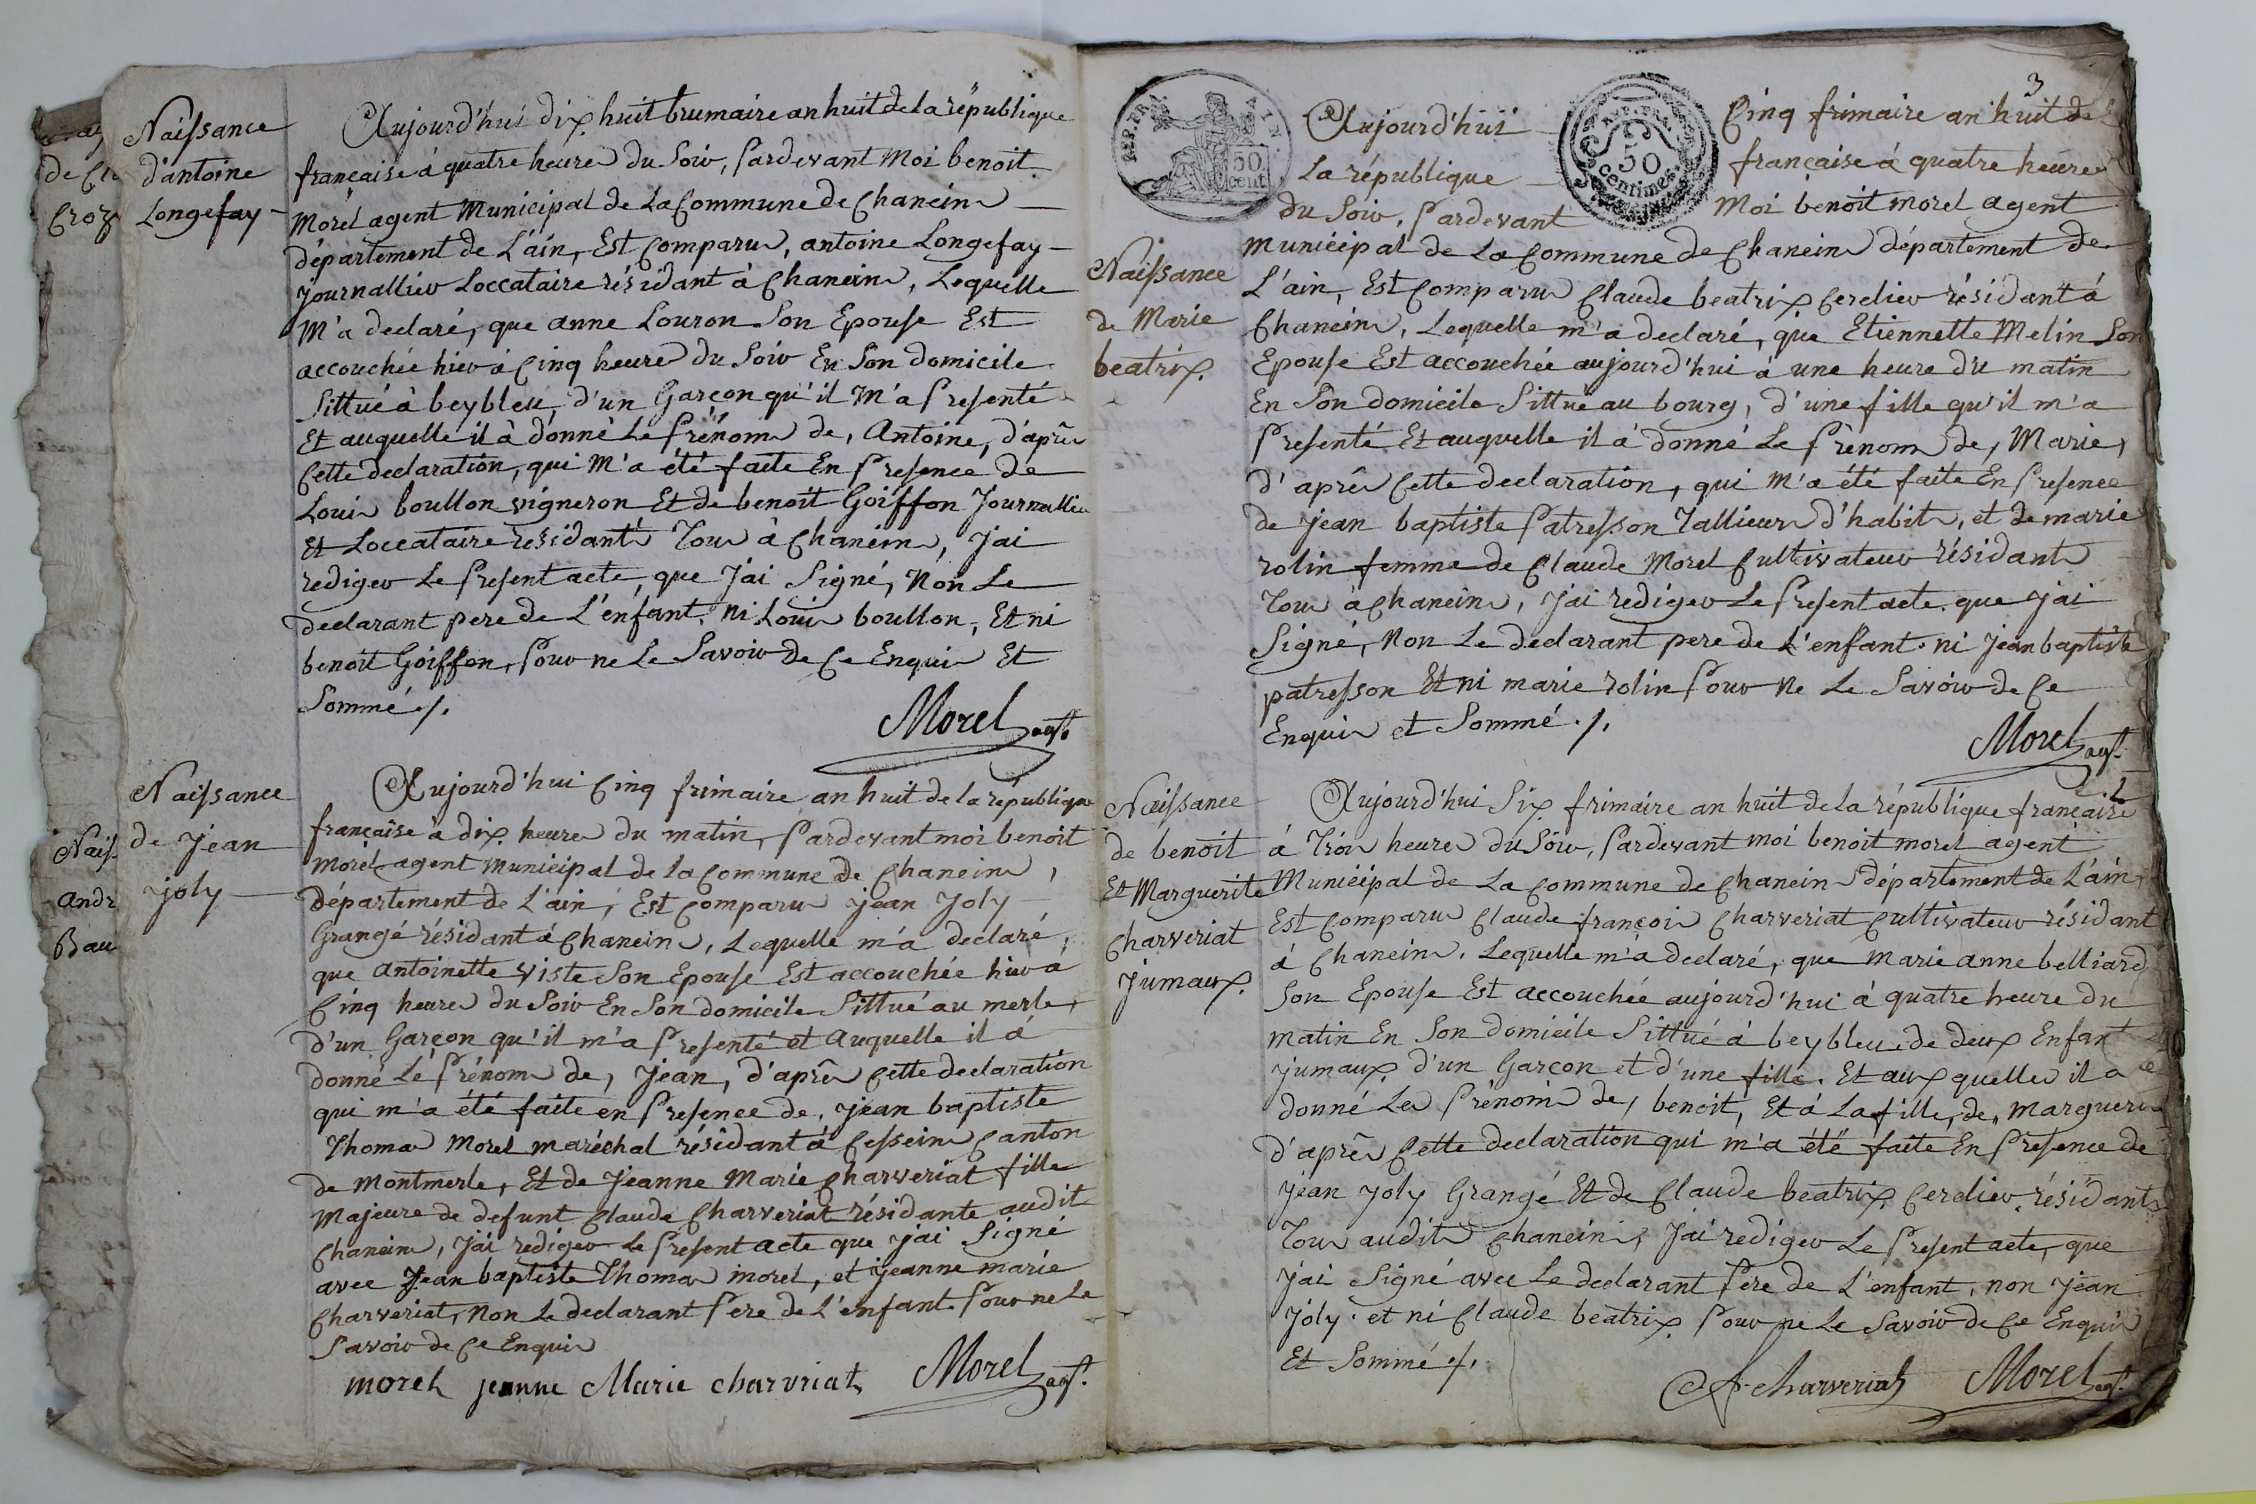 Naissance
d'antoine
Longefay
Aujourd'hui dix huit brumaire an huit de la république
française á quatre heures du Soir, Pardevant Moi benoit
Morel agent Municipal de La Commune de Chaneins
département de L'ain, Est Comparus, antoine Longefay
Journallier Loccataire résidant à Chaneins, Lequelle
M'a declaré, que anne Louron Son Epouse Est
accouchée hier á Cinq heures du Soir En Son domicile
Sittué à beybleu, d'un Garçon qu'il M'a Presenté
Et auquelle il à donné Le Prénoms de, Antoine, d'après
Cette declaration, qui M'a été faite En Presence de
Louis boullon vigneron Et de benoit Goiffon Journallier
Et Loccataire résidants Tous à Chaneins, J'ai
rediger Le Present acte, que J'ai Signé, Non Le
declarant pere de L'enfant, ni Louis boullon, Et ni
benoit Goiffon, Pour ne Le Savoir de Ce Enquis Et
Sommé ./.
Morel agt.
Naissance
de Jean
joly
Aujourd'hui Cinq frimaire an huit de la république
française à dix heures du matin, Pardevant moi benoit
morel agent Municipal de la Commune de Chaneins,
département de L'ain, Est Comparus jean Joly
Grangé résidant á Chaneins, Lequelle m'a declaré,
que Antoinette viste Son Epouse Est accouchée hier á
Cinq heures du Soir En Son domicile Sittué au merle,
d'un Garçon qu'il m'a Presenté et Auquelle il á
donné Le Prénoms de, Jean, d'après Cette declaration
qui m'a été faite en Presence de, jean baptiste
Thomas Morel maréchal résidant á Cesseins Canton
de Montmerle, Et de Jeanne Marie Charveriat fille
Majeure de defunt Claude Charveriat résidante audit
Chaneins, J'ai rediger Le Present acte que j'ai Signé
avec Jean baptiste Thomas morel, et jeanne marie
Charveriat, Non Le declarant Pere de L'enfant Pour ne Le
Savoir de Ce Enquis
morel jeanne Marie charvriat Morel agt.
REP. FRA.
50
cent.
50
centimes
3
Aujourd'hui Cinq frimaire an huit de
La république française á quatre heures
du Soir, Pardevant Moi benoit morel agent
Naissance
de Marie
beatrix.
Municipal de La Commune de Chaneins département de
L'ain, Est Comparus Claude beatrix Cerclier résidant á
Chaneins, Lequelle m'a declaré, que Etiennette Melin Son
Epouse Est accouchée aujourd'hui á une heure du matin
En Son domicile Sittué au bourg, d'une fille qu'il m'a
Presenté Et auquelle il á donné Le Prénoms de, Marie,
d'après Cette declaration, qui M'a été faite En Presence
de jean baptiste Patresson Tallieurs d'habits, et de marie
rolin femme de Claude Morel Cultivateur résidants
Tous à Chaneins, J'ai rediger Le Present acte que j'ai
Signé, Non Le declarant pere de L'enfant. ni Jean baptiste
patresson Et ni marie rolin Pour Ne Le Savoir de Ce
Enquis et Sommé ./.
Morel agt.
Naissance
de benoit
Et Marguerite
Charveriat
Jumaux.
Aujourd'hui Six frimaire an huit de la république française
á Trois heures du Soir, Pardevant moi benoit morel agent
Municipal de La Commune de Chaneins département de L'ain,
Est Comparus Claude françois Charveriat Cultivateur résidant
á Chaneins, Lequelle m'a declaré, que Marie anne belliard
Son Epouse Est accouchée aujourd'hui á quatre heure du
matin En Son domicile Sittué á beybleu de deux Enfant
jumaux d'un Garçon et d'une fille. Et auxquelles il a
donné Les Prénoms de, benoit, Et á La fille, de,
d'après Cette declaration qui m'a été faite En Presence de
jean joly Grangé Et de Claude beatrix Cerclier résidants
Tous audits Chaneins, J'ai rediger Le Present acte, que
J'ai Signé avec Le declarant Pere de L'enfant, non Jean
Joly. et ni Claude beatrix Pour ne Le Savoir de Ce Enquis
Et Sommé ./.
charveriat Morel agt.